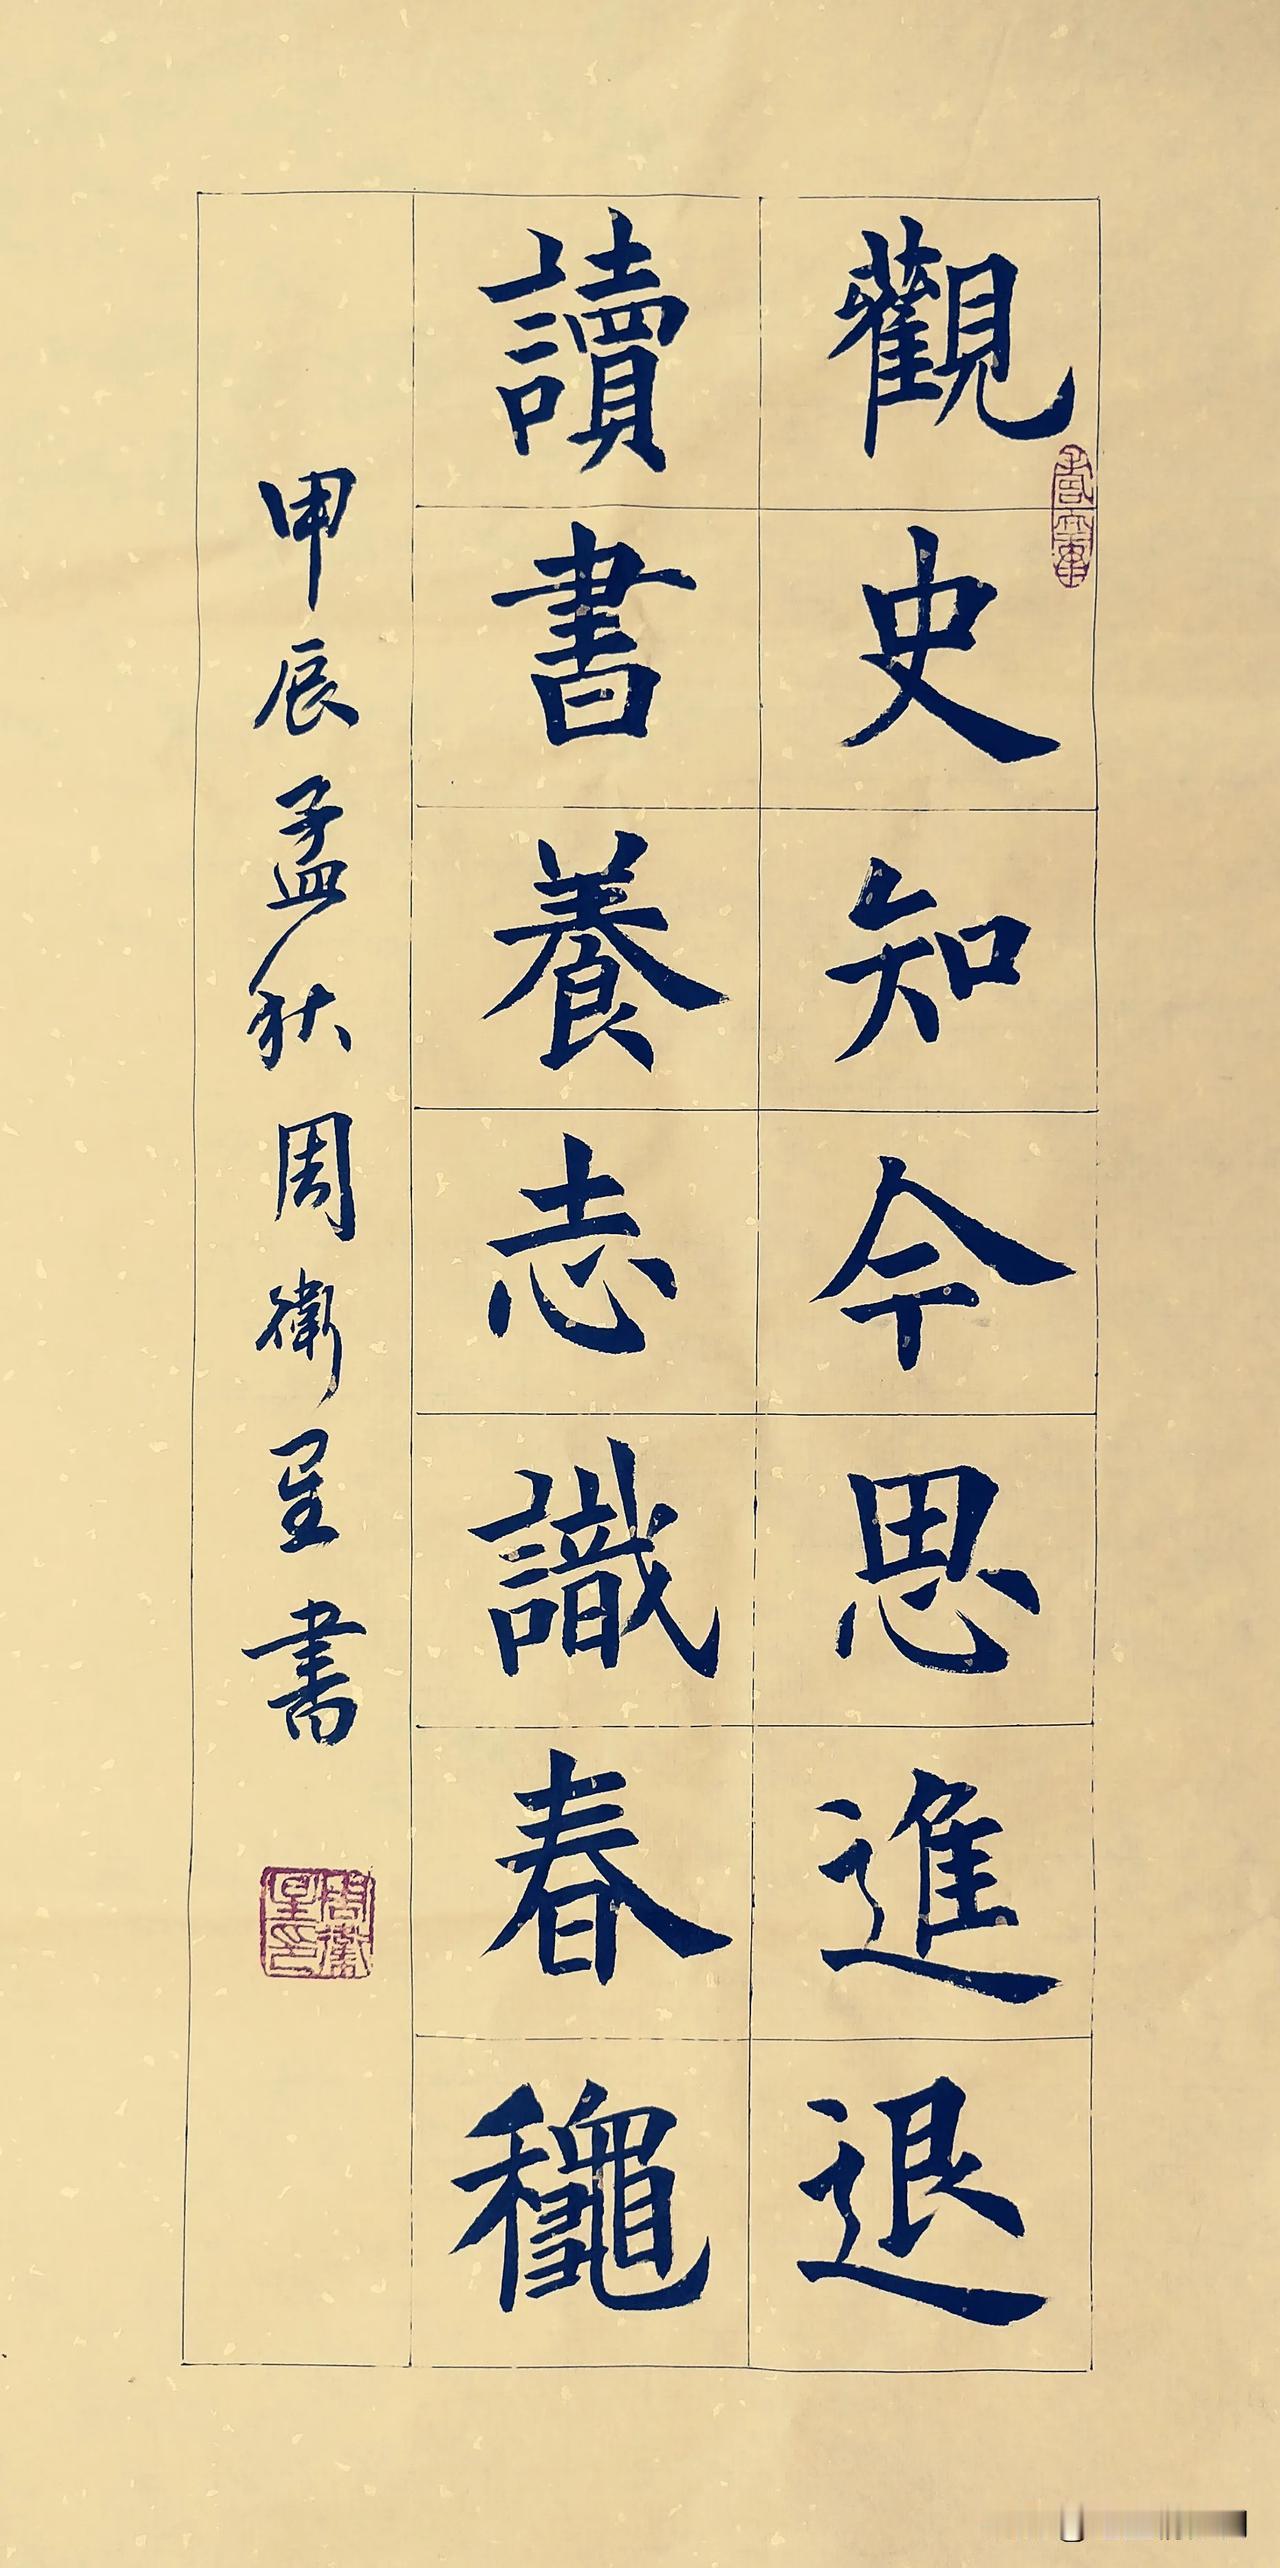 觀史知今思進退
讀書養志識春龝
甲辰孟秋周衛星書
周衛星印